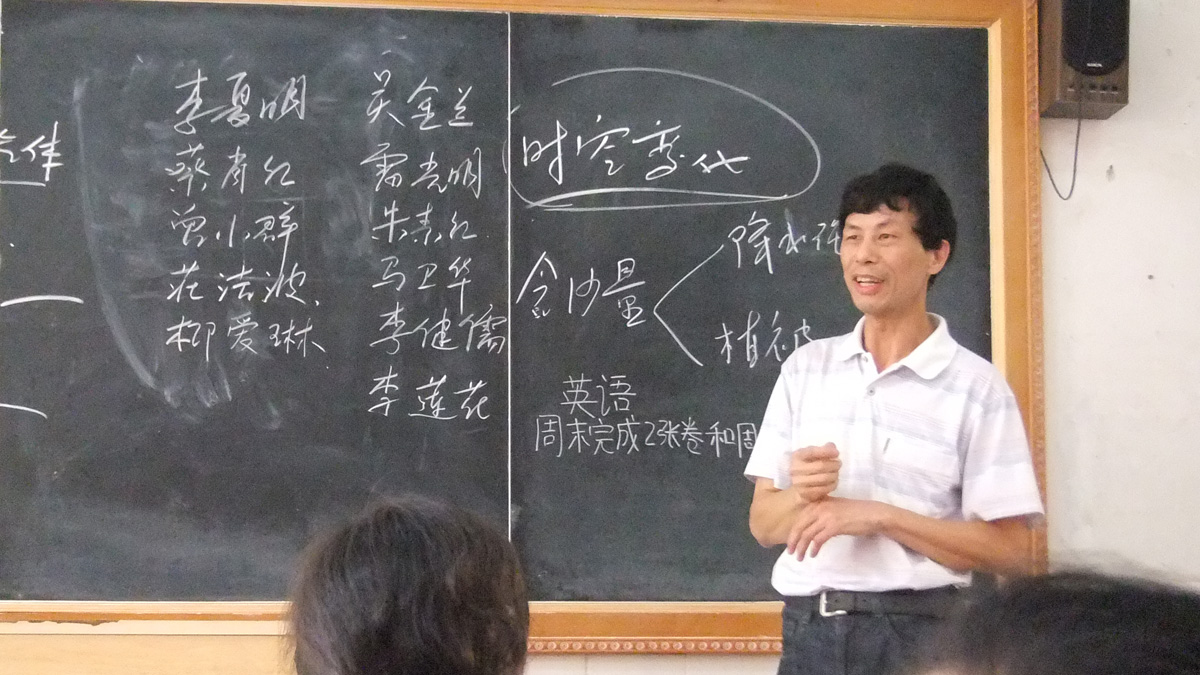 李夏明 吴金兰
蔡肖红 雷光明
曾小群 朱素红
庄法波 马卫华
柳爱琳 李健儒
李莲花
时空变化
含沙量
降水强
植被
英语
周末完成2张卷和周